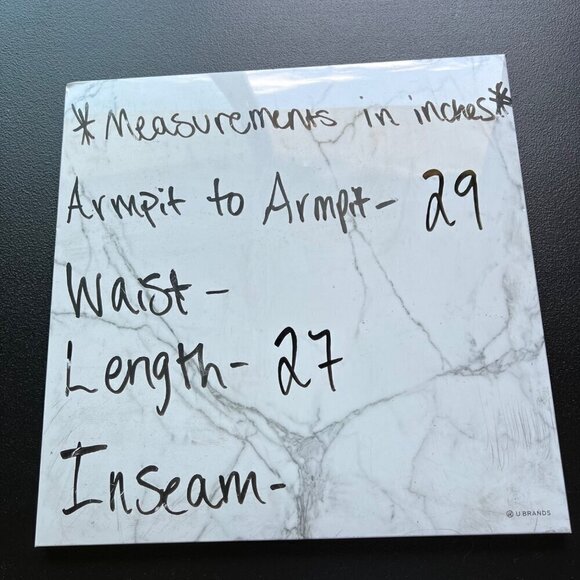 *Measurements in inches*
Armpit to Armpit- 29
Waist-
Length- 27
Inseam-
U BRANDS